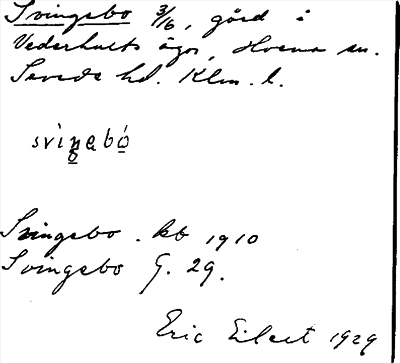 Svingsbo 3/16, gård i
Vederhults ägor, Hvena sn.
Sevede hd. Klm. l.
svìŋabó
Svingsbo. kb 1910
Svingsbo G. 29.
Eric Eilert 1929